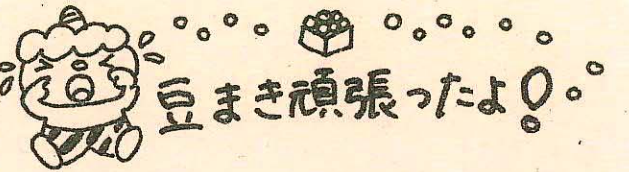 豆まき頑張ったよ!